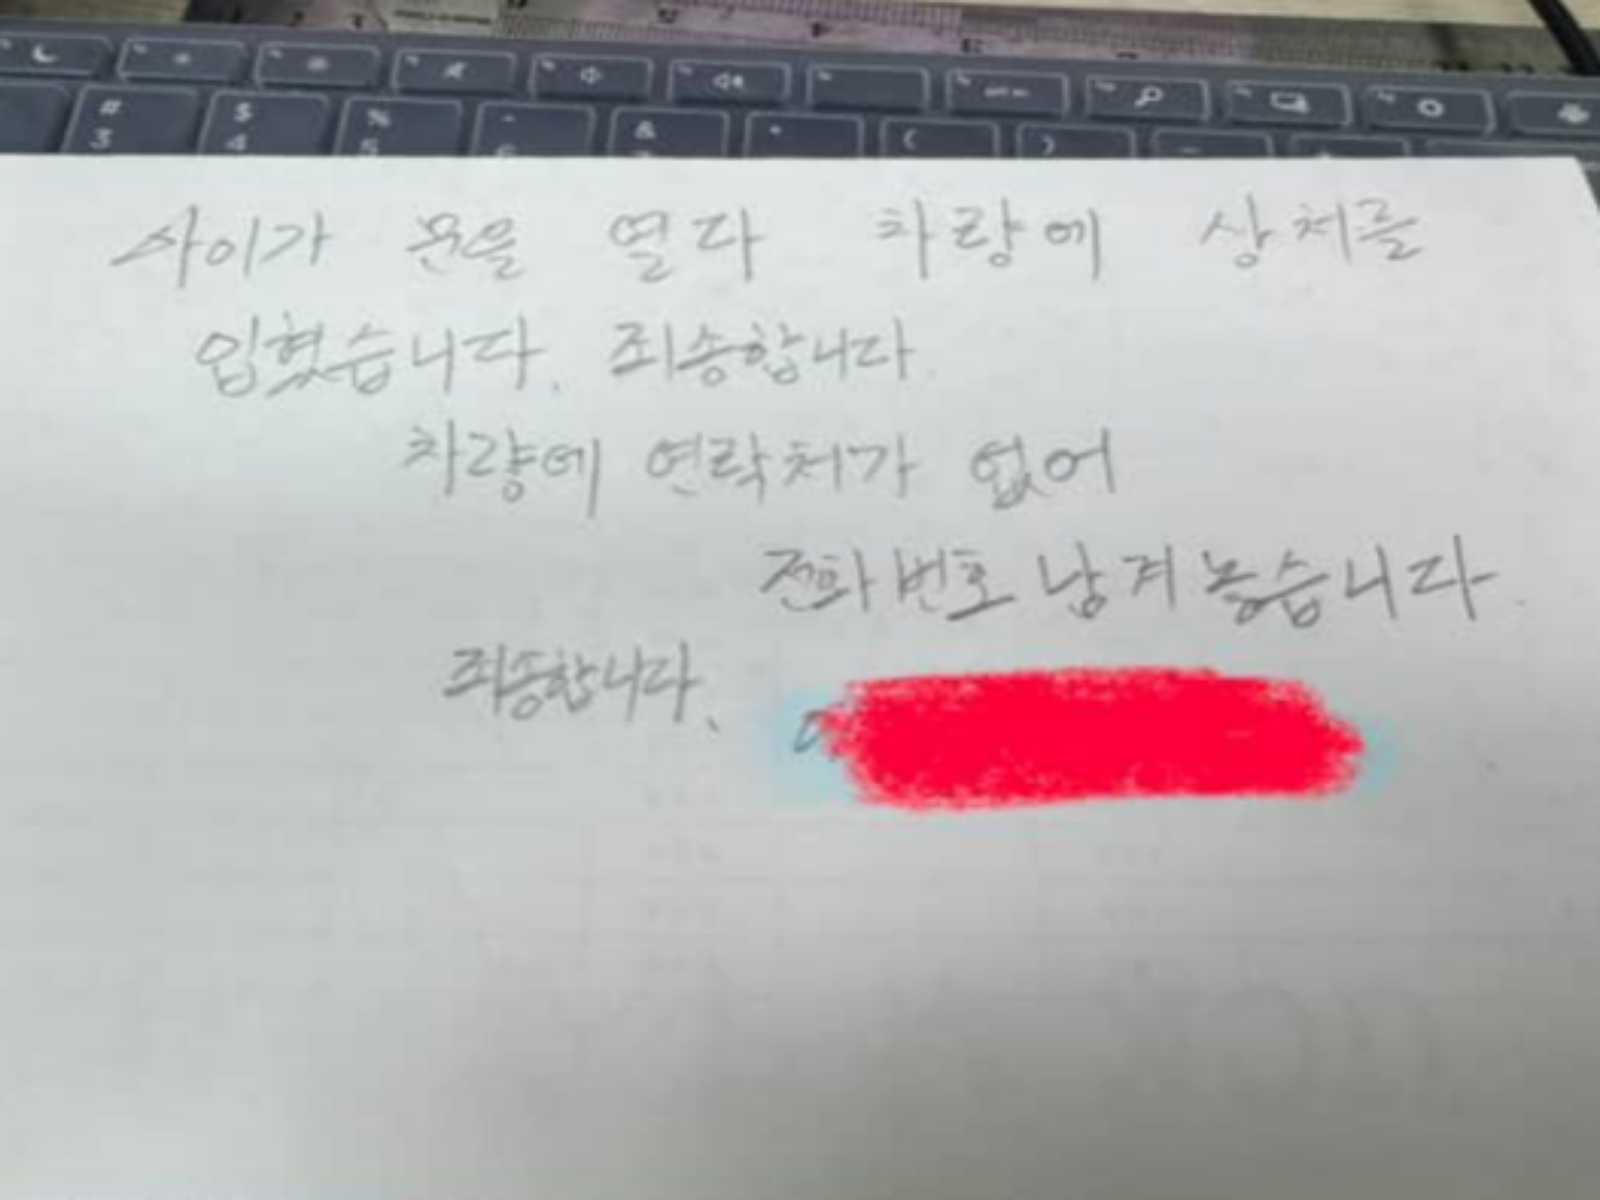 # $ % ^ & * ( ) _
3 4 5
사이가 문을 열다 차량에 상처를
입혔습니다. 죄송합니다.
차량에 연락처가 없어
전화번호 남겨놓습니다.
죄송합니다.